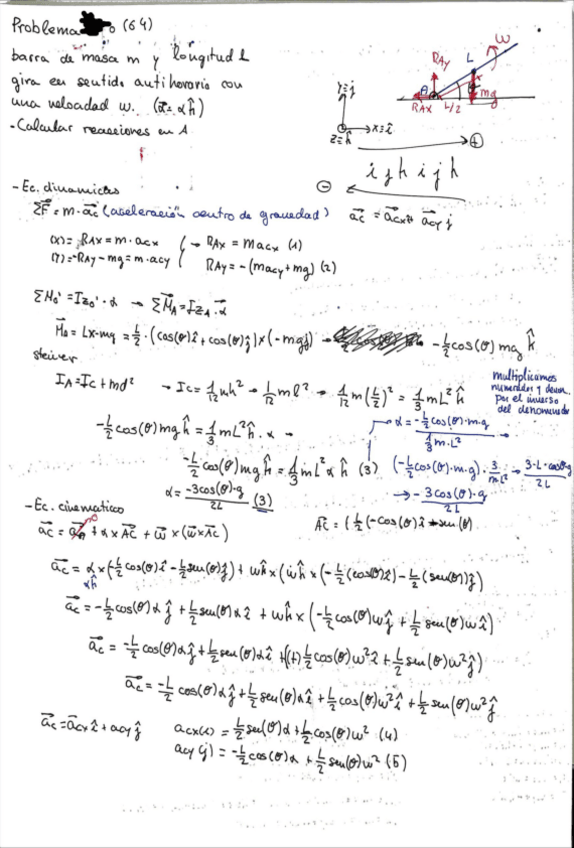 Problema (64)
barra de masa m y longitud L
gira en sentido antihorario con
una velocidad w. (α=αk̂)
-Calcular reacciones en A.
RAy L w
A θ
RAx L/2 mg
y=j
z=k x=i
i j k i j k
-Ec. dinamicas
ΣF=m·ac (aceleración centro de gravedad) ac = acx + acy j
(x)= RAx=m·acx → RAx = macx (1)
(y)=-RAy-mg=m·acy RAy=-(macy+mg) (2)
ΣMo'=Izo'·α → ΣMA=IzA·α
Lx-mg=L/2·(cos(θ)i+cos(θ)j)x(-mgj) -L/2cos(θ) mg k̂
steiner
IA=Ic+md² → Ic=1/12 → 1/12 ml² → 1/12 m(L/2)²=1/3 mL² k̂
multiplicamos
numerador y denom.
por el inverso
del denominador
-L/2cos(θ)mg k̂=1/3 mL² k̂·α →
α=-L/2cos(θ)·m·g / 1/3 m·L²
-L/2cos(θ)mg k̂=1/3 mL² α k̂ (3)
(-L/2cos(θ)·m·g)·3/mL² → 3·L·cosθ·g/2L
α=-3cos(θ)·g/2L (3)
→ -3cos(θ)·g/2L
-Ec. cinematico
ac = + α x AC + w x (w x AC)
AC = (L/2(-cos(θ)i sen(θ)
ac = α x(-L/2cos(θ)i-L/2sen(θ)j) + wk̂ x (wk̂ x (-L/2(cos(θ)i)-L/2(sen(θ))j)
αk̂
ac = -L/2cos(θ)αj + L/2sen(θ)αi + wk̂ x (-L/2cos(θ)wj + L/2sen(θ)wi)
ac = -L/2cos(θ)αj + L/2sen(θ)αi +(+)L/2cos(θ)w²i + L/2sen(θ)w²j)
ac = -L/2cos(θ)αj + L/2sen(θ)αi + L/2cos(θ)w²i + L/2sen(θ)w²j
ac = acx i + acy j acx(i) = L/2sen(θ)α + L/2cos(θ)w² (4)
acy(j) = -L/2cos(θ)α + L/2sen(θ)w² (5)